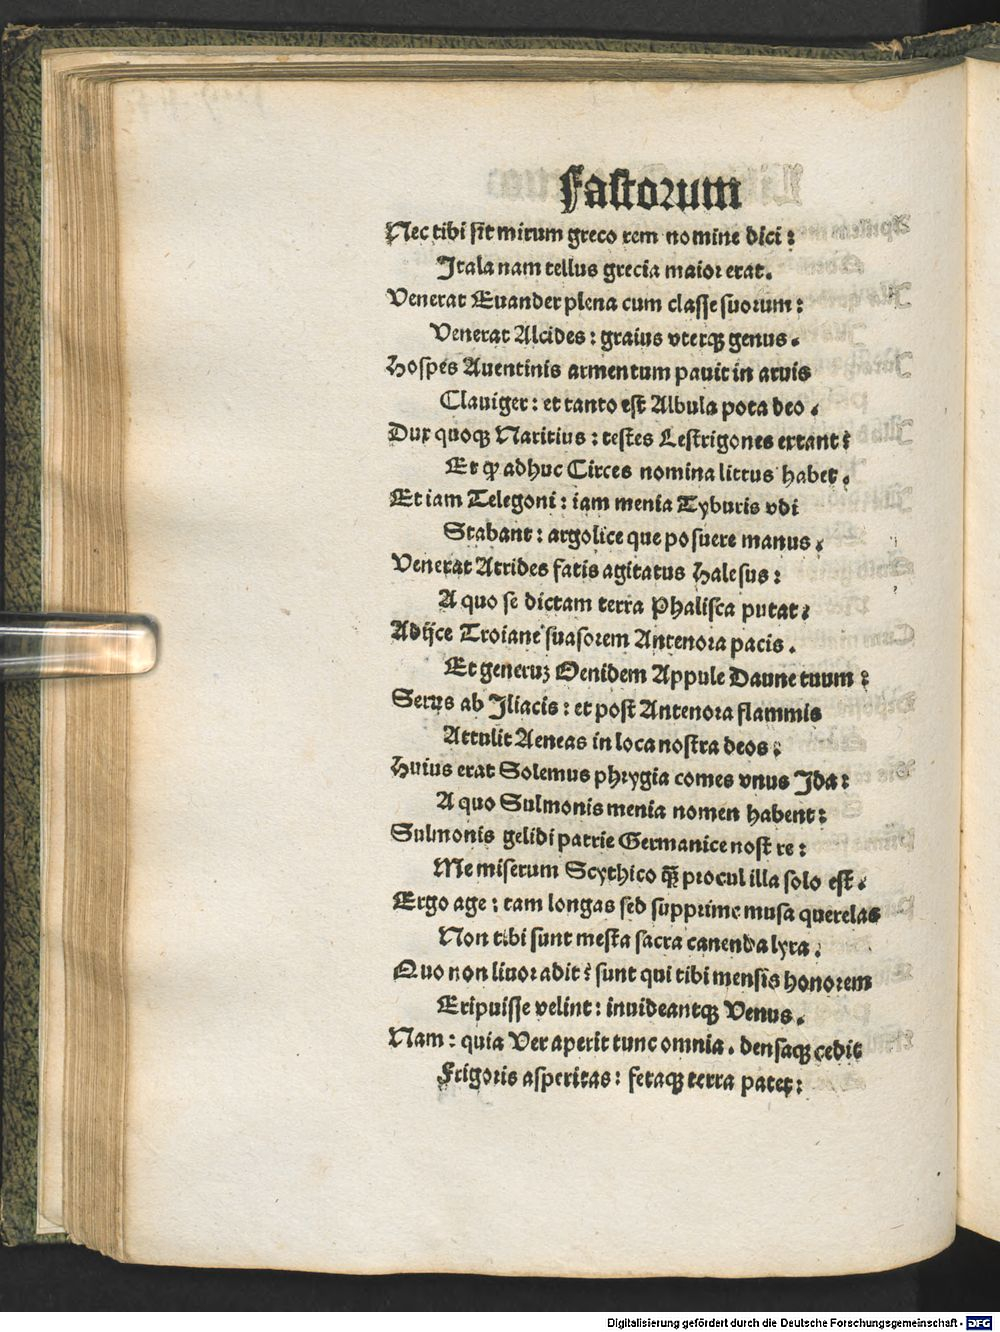 Fastorum
Nec tibi sit mirum greco rem nomine dici:
Itala nam tellus grecia maior erat.
Venerat Euander plena cum classe suorum:
Venerat Alcides: graius vterqꝫ genus.
Hospes Auentinis armentum pauit in aruis
Clauiger: et tanto est Albula pota deo.
Dux quoqꝫ Naritius: testes Lestrigones extant:
Et ꝙ adhuc Circes nomina littus habet.
Et iam Telegoni: iam menia Tyburis vdi
Stabant: argolice que posuere manus.
Venerat Atrides fatis agitatus Halesus:
A quo se dictam terra Phalisca putat:
Adijce Troiane suasorem Antenora pacis.
Et generuꝫ Oenidem Appule Daune tuum:
Serus ab Iliacis: et post Antenora flammis
Attulit Aeneas in loca nostra deos:
Huius erat Solemus phrygia comes vnus Ida:
A quo Sulmonis menia nomen habent:
Sulmonis gelidi patrie Germanice nostre:
Me miserum Scythico q̃ꝫ procul illa solo est.
Ergo age: tam longas sed supprime musa querelas
Non tibi sunt mesta sacra canenda lyra.
Quo non liuor adit: sunt qui tibi mensis honorem
Eripuisse velint: inuideantqꝫ Venus.
Nam: quia Ver aperit tunc omnia. densaqꝫ cedit
Frigoris asperitas: fetaqꝫ terra patet:
Digitalisierung gefördert durch die Deutsche Forschungsgemeinschaft - DFG